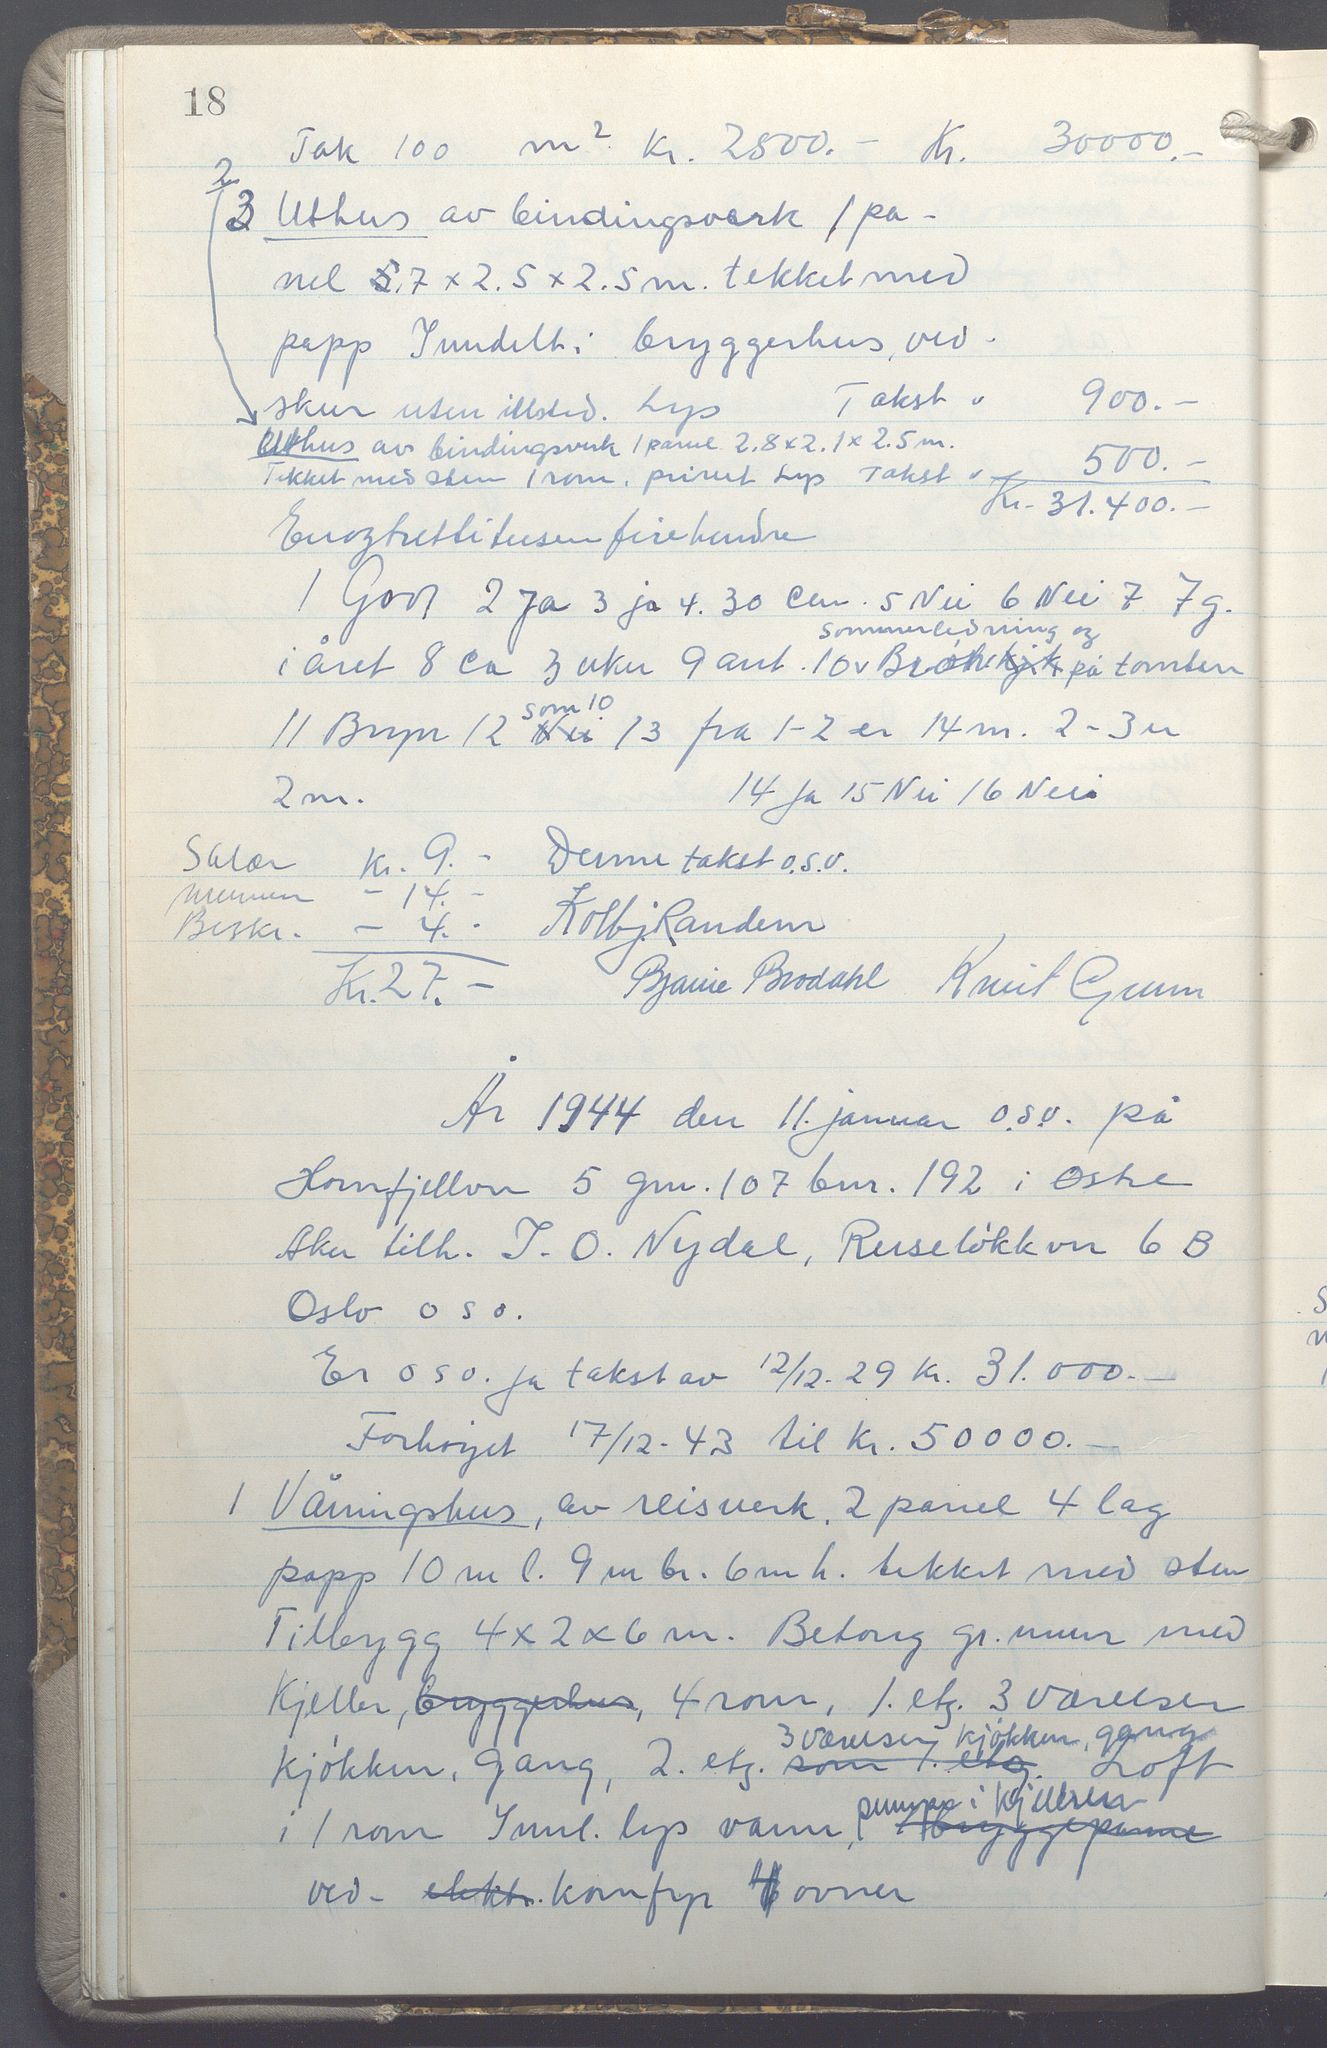 18
Tak 100 m² Kr. 2800.- Kr. 30000.-
2
3 Uthus av bindingsverk 1 pa-
nel 5.7 x 2.5 x 2.5 m. tekket med
papp Inndelt i bryggerhus, ved-
skur uten illsted. Lys Takst " 900.-
Uthus av bindingsverk 1 panel 2.8 x 2.1 x 2.5 m.
Tekket med sten 1 rom, privet Lys Takst " 500.-
Kr. 31.400.-
Enogtrettitusenfirehundre
1 God 2 Ja 3 ja 4. 30 cm. 5 Nei 6 Nei 7 7 g.
sommerledning og
i året 8 Ca 3 uker 9 ant. 10 v på tomten
som 10
11 Bryn 12 Nei 13 fra 1-2 er 14 m. 2-3 er
2 m. 14 ja 15 Nei 16 Nei
Salær Kr. 9.- Denne takst o.s.v.
- 14.-
Beskr. - 4.- Kolbj. Randem
Kr. 27.- Bjarne Brodahl Knut Grum
År 1944 den 11. januar o.s.v. på
Hornfjellvn 5 gnr. 107 bnr. 192 i Østre
Aker tilh. J. O. Nydal, Ruseløkkvn 6 B
Oslo o s v.
Er o s v. ja takst av 12/12-29 Kr. 31.000.-
Forhøiet 17/12-43 til Kr. 50000.-
1 Våningshus, av reisverk, 2 panel 4 lag
papp 10 m l. 9 m br. 6 m h. tekket med sten
Tilbygg 4 x 2 x 6 m. Betong gr. mur med
Kjeller, bryggerhus, 4 rom, 1. etg. 3 værelser
3 værelser, kjøkken, gang
Kjøkken, gang, 2. etg. som 1. etg. Loft
pumpe i kjelleren
i 1 rom Innl. lys vann, 1 bryggepanne
ved- elektr. komfyr 4 ovner